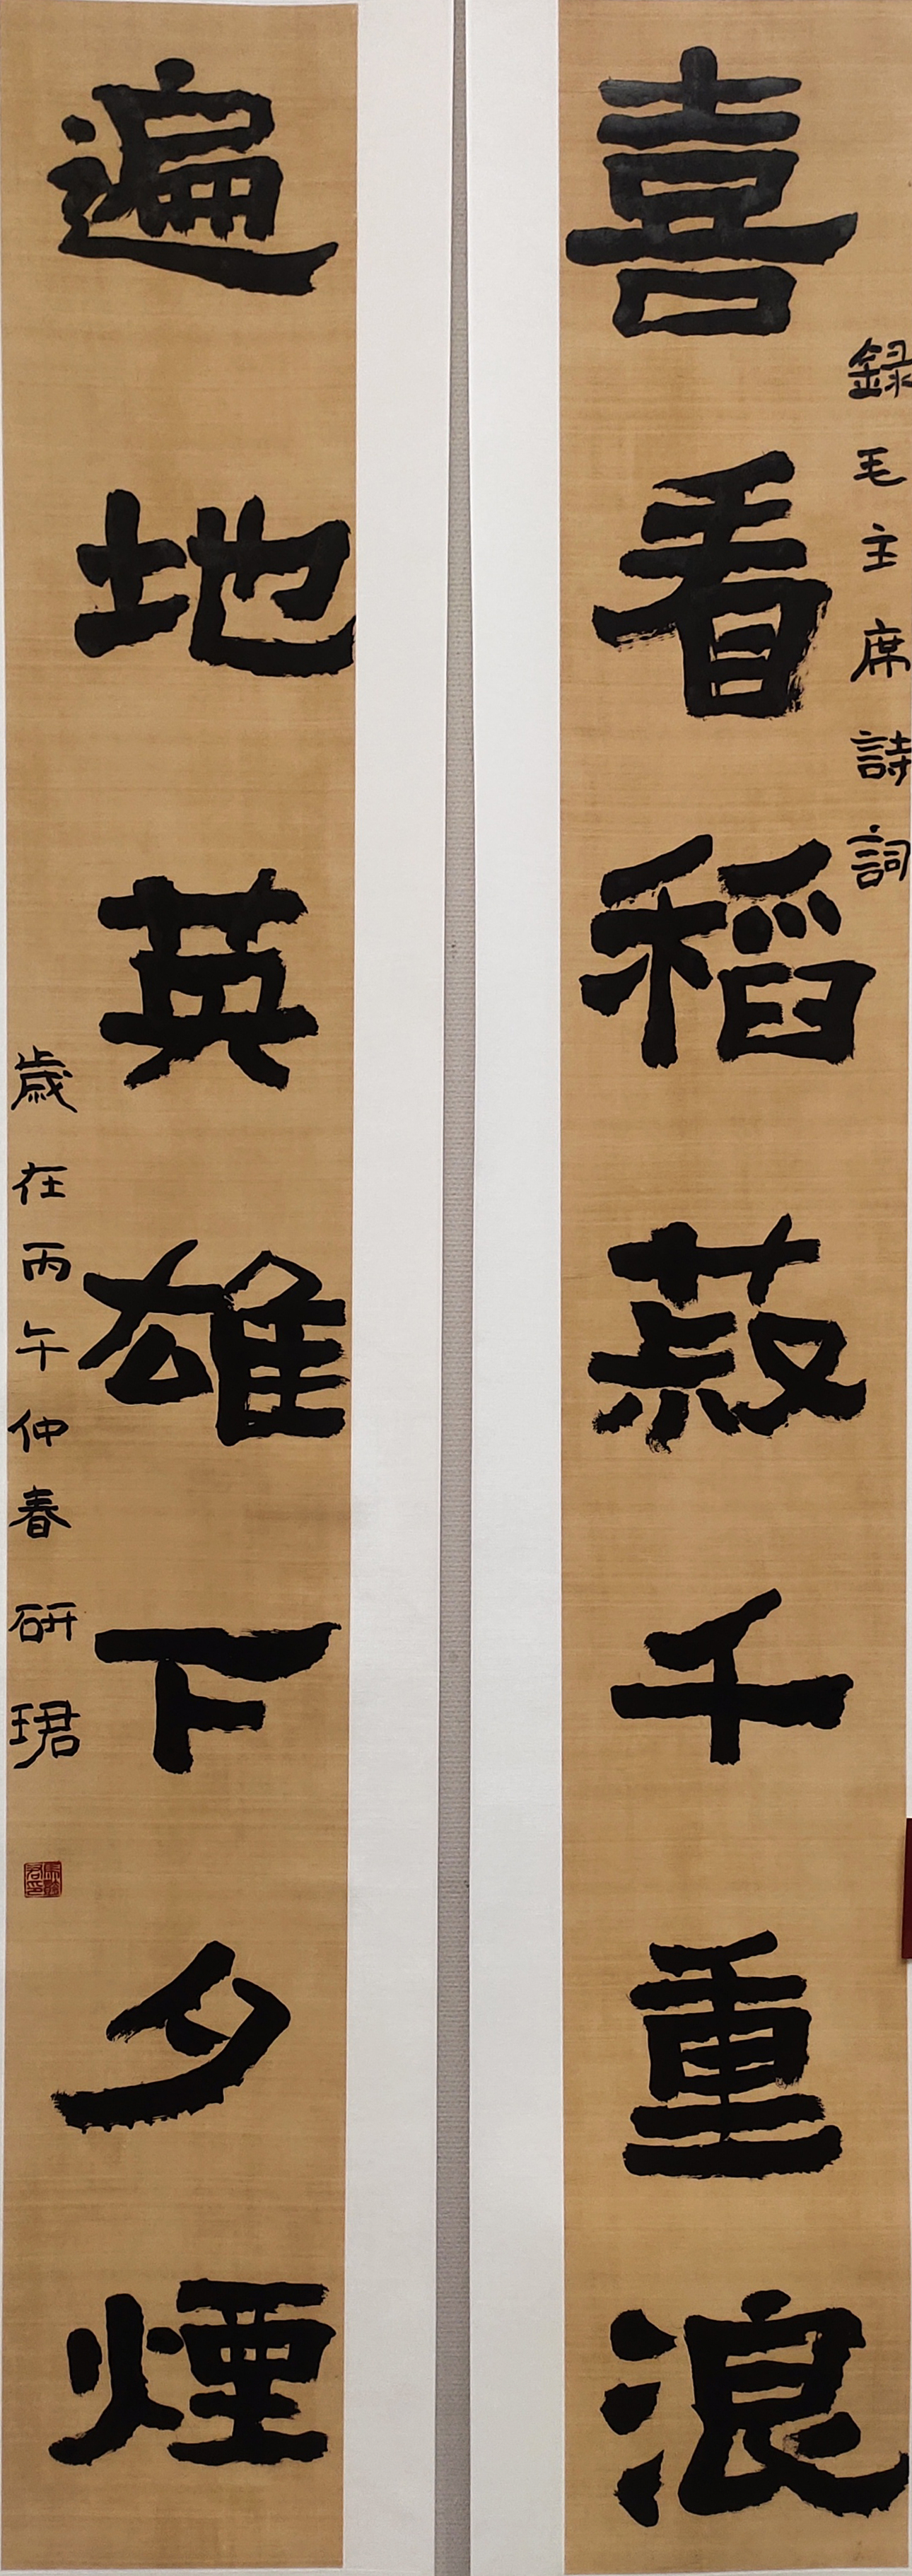 喜看稻菽千重浪
錄毛主席詩詞
遍地英雄下夕煙
歲在丙午仲春 研珺